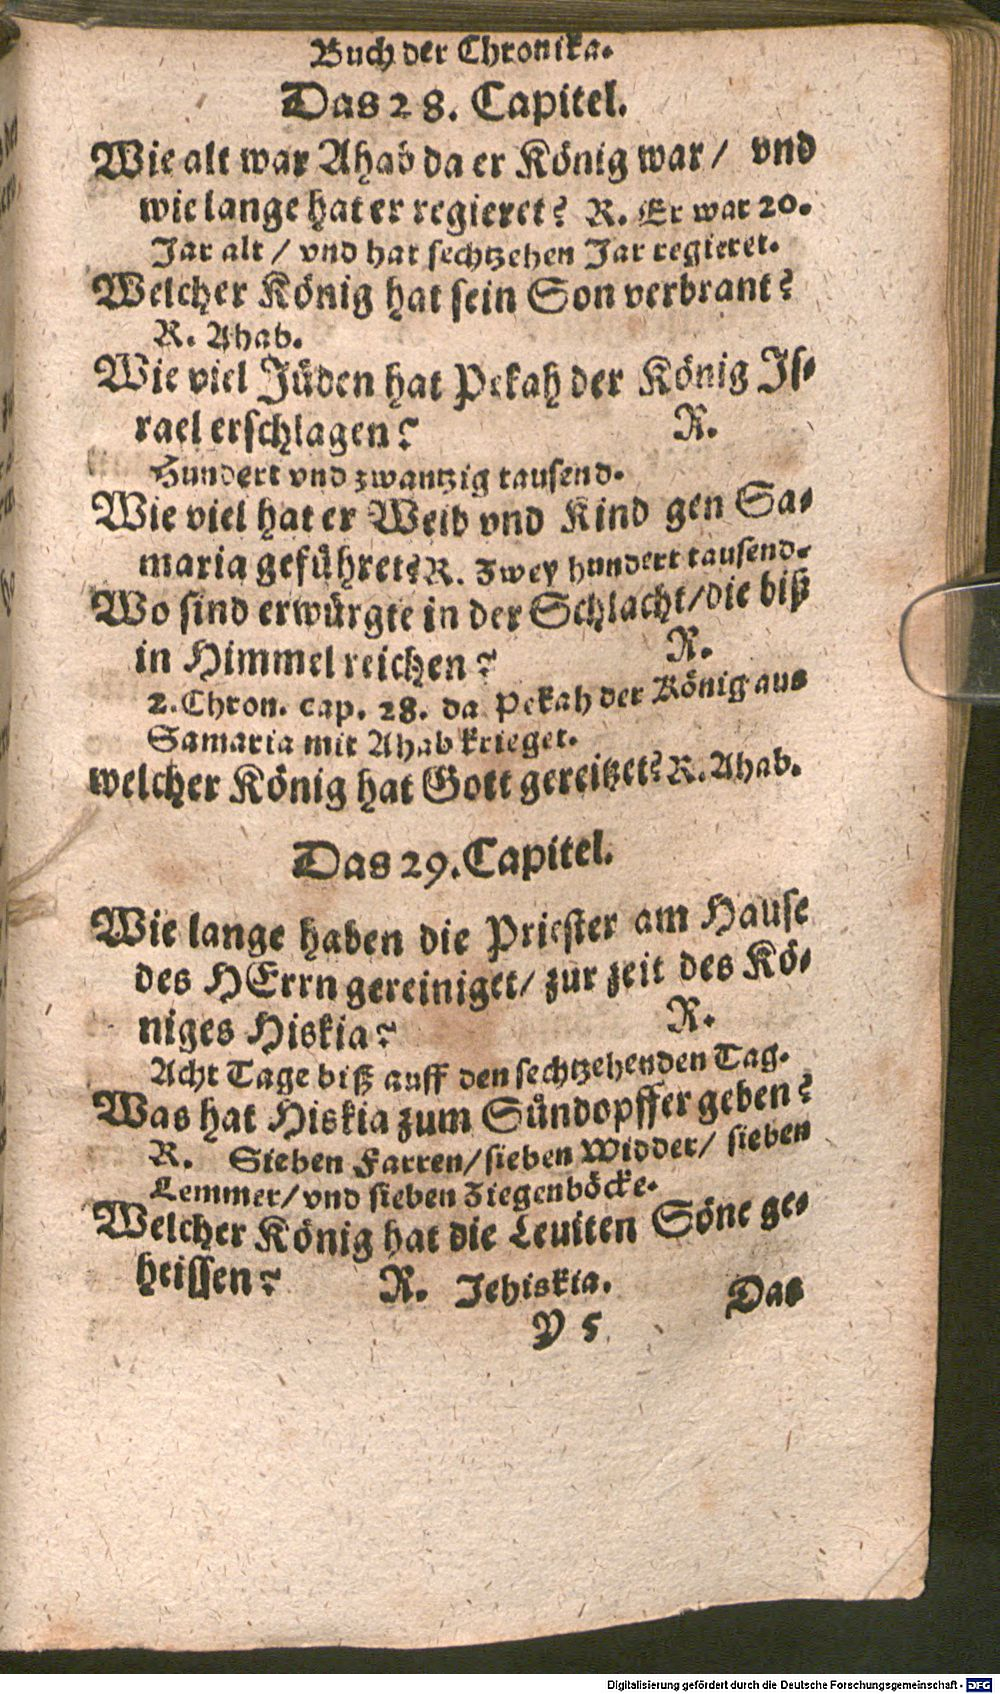 Buch der Chronika.
Das 28. Capitel.
Wie alt war Ahab da er König war/ vnd
wie lange hat er regieret? R. Er war 20.
Jar alt / vnd hat sechtzehen Jar regieret.
Welcher König hat sein Son verbrant?
R. Ahab.
Wie viel Jüden hat Pekah der König Js-
rael erschlagen? R.
Hundert vnd zwantzig tausend.
Wie viel hat er Weib vnd Kind gen Sa-
maria geführet? R. Zwey hundert tausend.
Wo sind erwürgte in der Schlacht/die biß
in Himmel reichen? R.
2. Chron. cap. 28. da Pekah der König aus
Samaria mit Ahab krieget.
welcher König hat Gott gereitzet? R. Ahab.
Das 29. Capitel.
Wie lange haben die Priester am Hause
des HErrn gereiniget/ zur zeit des Kö-
niges Hiskia? R.
Acht Tage biß auff den sechtzehenden Tag.
Was hat Hiskia zum Sündopffer geben?
R. Sieben Farren/sieben Widder/ sieben
Lemmer/vnd sieben Ziegenböcke.
Welcher König hat die Leuiten Söne ge-
heissen? R. Jehiskia.
Y 5 Das
Digitalisierung gefördert durch die Deutsche Forschungsgemeinschaft - DFG